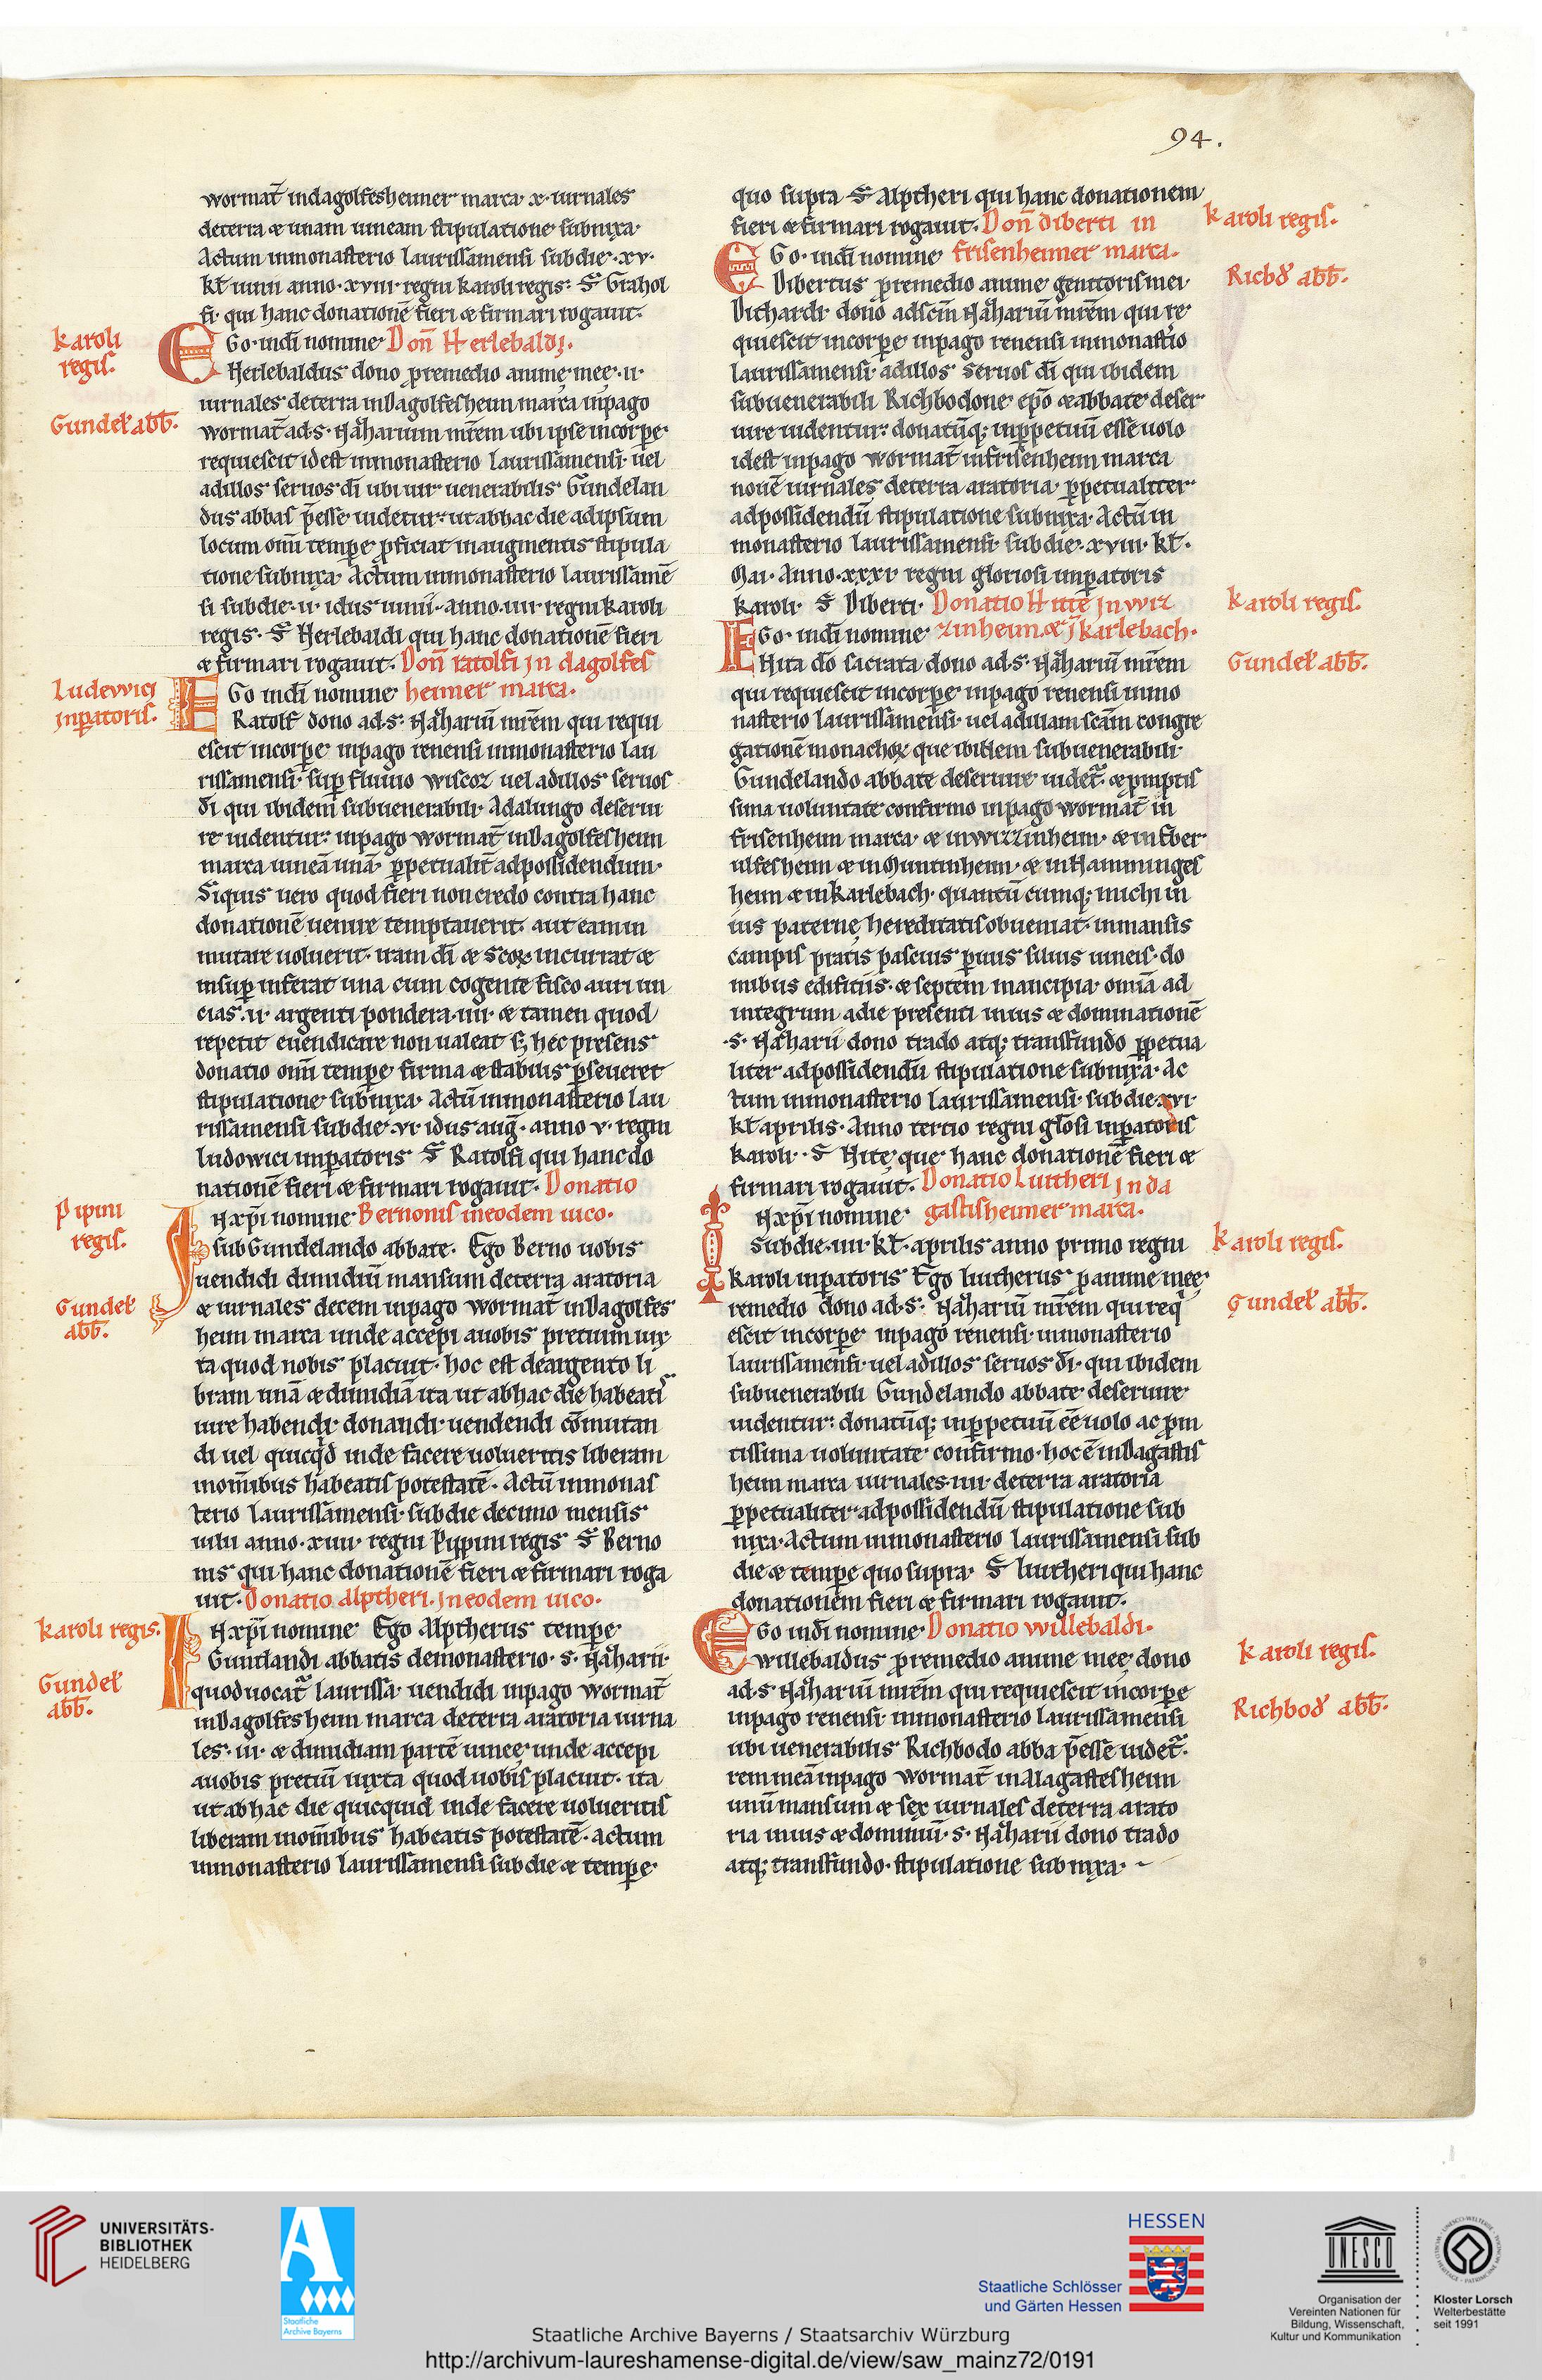 94.
wormat̄ indagolfesheimer marca x. iurnales
deterra & unam uineam stipulatione subnixa.
Actum inmonasterio laurissamensi subdie .xv.
kl̄ iunii anno .xviii. regni karoli regis. S̄ Grahol
fi. qui hanc donationē fieri & firmari rogauit.
karoli
regis.
Ego. indī nomine Don̄ Herlebaldi.
Herlebaldus dono p̱remedio anime mee .ii.
Gundel̄ abb̄.
iurnales deterra inDagolfesheim marca inpago
wormat̄ ad.s. Nazharium mr̄em ubi ipse incorpe
requiescit idest inmonasterio laurissamensi. uel
adillos seruos dī ubi uir uenerabilis Gundelan
dus abbas p̄esse uidetur. ut abhac die adipsum
locum om̄i tempe proficiat inaugmentis stipula
tione subnixa. Actum inmonasterio laurissamē
si subdie .ii. idus iunii. anno .iiii. regni karoli
regis. S̄ Herlebaldi qui hanc donationē fieri
& firmari rogauit. Don̄ ratolfi Jn dagolfes
Ludewici
Jnpatoris.
Ego indī nomine heimer marca.
Ratolf dono ad.s. Nazhariū mr̄em qui requi
escit incorpe inpago renensi inmonasterio lau
rissamensi. sup fluuio wiscoz uel adillos seruos
dī qui ibidem subuenerabili Adalungo deserui
re uidentur. inpago wormat̄ inDagolfesheim
marca uineā unā. ppetualit̄ adpossidendum.
Siquis uero quod fieri noncredo contra hanc
donationē uenire temptauerit. aut eam in
mutare uoluerit. iram dī & scōꝝ incurrat &
insup inferat una cum cogente fisco auri un
cias .ii. argenti pondera .iiii. & tamen quod
repetit euendicare non ualeat s; hec presens
donatio om̄i tempe firma & stabilis pseueret
stipulatione subnixa. Actū inmonasterio lau
rissamensi subdie .vi. idus aug̅. anno v. regni
ludowici impatoris S̄ Ratolfi qui hanc do
nationē fieri & firmari rogauit. Donatio
Pipini
regis.
Jn xp̄i nomine Bernonis ineodem uico.
sub Gundelando abbate. Ego Berno uobis
uendidi dimidiū mansum deterra aratoria
Gundel̄
abb̄.
& iurnales decem inpago wormat̄ inDagolfes
heim marca unde accepi auobis pretium iux
ta quod nobis placuit. hoc est deargento li
bram unā & dimidiā ita ut abhac die habeatis
iure habendi. donandi. uendendi cōmutan
di uel quicqd inde facere uolueritis liberam
inom̄ibus habeatis potestatē. Actū inmonas
terio laurissamensi. subdie decimo mensis
iulii anno .xiiii. regni Pippini regis S̄ Berno
nis qui hanc donationē fieri & firmari roga
uit. Donatio Alptheri. Jneodem uico.
karoli regis.
Jn xp̄i nomine Ego Alptherus tempe
Guntlandi abbatis demonasterio .s. Nazharii.
Gundel̄
abb̄.
quod uocat̄ laurissa. uendidi inpago wormat̄
inDagolfesheim marca deterra aratoria iurna
les .iii. & dimidiam partē uinee unde accepi
auobis pretiū iuxta quod uobis placuit. ita
ut abhac die quicquid inde facere uolueritis
liberam inom̄ibus habeatis potestatē. actum
inmonasterio laurissamensi subdie & tempe
quo supra S̄ Alptheri qui hanc donationem
fieri & firmari rogauit. Don̄ diberti in
karoli regis.
Ego. indī nomine frisenheimer marca.
Dibertus premedio anime genitoris mei
Ricbꝺ abb̄.
Dichardi dono adscm̄ Nazhariū mr̄em qui re
quiescit incorpe inpago renensi inmonastio
laurissamensi. adillos seruos dī qui ibidem
subuenerabili Richbodone ep̄o & abbate deser
uire uidentur. donatūq; inppetuū esse uolo
idest inpago wormat̄ infrisenheim marca
nouē iurnales deterra aratoria. ppetualiter
adpossidendū stipulatione subnixa. Actū in
monasterio laurissamensi subdie .xviii. kl̄.
Mai. Anno .xxxi regni gloriosi impatoris
karoli. S̄ Diberti. Donatio Hitē Jn wiz
karoli regis.
Ego. indī nomine zinheim. & J̄ karlebach.
Hita dō sacrata dono ad.s. Nazhariū mr̄em
Gundel̄ abb̄.
qui requiescit incorpe inpago renensi inmo
nasterio laurissamensi. uel adillam scām congre
gationē monachoꝝ que ibidem subuenerabili
Gundelando abbate deseruire uidet̄. & pmptis
sima uoluntate confirmo inpago wormat̄ in
frisenheim marca. & inwizzinheim. & inEber
ulfesheim & inMuntinheim. & inHamminges
heim & inkarlebach. quantū cumq; michi in
ius paterne hereditatis obueniat. inmansis
campis pratis pascuis puiis siluis uineis. do
mibus edificiis. & septem mancipia. om̄ia ad
integrum adie presenti inius & dominationē
.s. Nazharii dono trado atq; transfundo ppetua
liter adpossidendū stipulatione subnixa. Ac
tum inmonasterio laurissamensi. subdie .xvi.
kl̄ aprilis. Anno tertio regni glosi inpatoris
karoli. S̄ Hite que hanc donationē fieri &
firmari rogauit. Donatio Luitheri Jn da
Jn xp̄i nomine gastisheimer marca.
Subdie .iiii. kl̄. aprilis anno primo regni
karoli regis.
karoli inpatoris Ego luitherus panime mee
remedio dono ad.s. Nazhariū mr̄em qui req
Gundel̄ abb̄.
escit incorpe inpago renensi. inmonasterio
laurissamensi. uel adillos seruos dī. qui ibidem
subuenerabili Gundelando abbate deseruire
uidentur. donatūq; inppetuū eē uolo ac prom
tissima uoluntate confirmo. hoc ē inDagastis
heim marca iurnales .iiii. deterra aratoria
ppetualiter adpossidendū stipulatione sub
nixa. Actum inmonasterio laurissamensi sub
die & tempe quo supra. S̄ luitheri qui hanc
donationem fieri & firmari rogauit.
Ego indī nomine Donatio willebaldi.
karoli regis.
willebaldus premedio anime mee dono
ad.s Nazhariū mr̄em qui requiescit incorpe
Richboꝺ abb̄.
inpago renensi. inmonasterio laurissamensi
ubi uenerabilis Richbodo abba p̄esse uidet̄.
rem meā inpago wormat̄ inAlagastesheim
unū mansum & sex iurnales deterra arato
ria inius & dominiū .s. Nazharii dono trado
atq; transfundo. stipulatione subnixa.
UNIVERSITÄTS-
BIBLIOTHEK
HEIDELBERG
Staatliche
Archive Bayerns
HESSEN
Staatliche Schlösser
und Gärten Hessen
UNESCO
Organisation der
Vereinten Nationen für
Bildung, Wissenschaft,
Kultur und Kommunikation
Kloster Lorsch
Welterbestätte
seit 1991
Staatliche Archive Bayerns / Staatsarchiv Würzburg
http://archivum-laureshamense-digital.de/view/saw_mainz72/0191